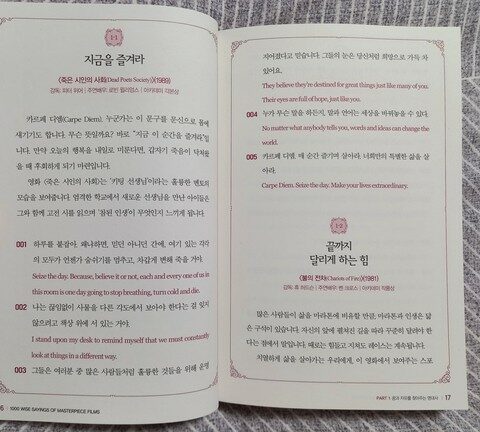 1-1
지금을 즐겨라
〈죽은 시인의 사회(Dead Poets Society)〉(1989)
감독: 피터 위어 | 주연배우: 로빈 윌리엄스 | 아카데미 각본상
카르페 디엠(Carpe Diem). 누군가는 이 문구를 문신으로 몸에
새기기도 합니다. 무슨 뜻일까요? 바로 "지금 이 순간을 즐겨라"입
니다. 만약 오늘의 행복을 내일로 미룬다면, 갑자기 죽음이 닥쳐왔을
때 후회하게 되기 마련입니다.
영화 〈죽은 시인의 사회〉는 '키팅 선생님'이라는 훌륭한 멘토의
모습을 보여줍니다. 엄격한 학교에서 새로운 선생님을 만난 아이들은
그와 함께 고전 시를 읽으며 '참된 인생'이 무엇인지 느끼게 됩니다.
001 하루를 붙잡아. 왜냐하면, 믿던 아니던 간에, 여기 있는 각각
의 모두가 언젠가 숨쉬기를 멈추고, 차갑게 변해 죽을 거야.
Seize the day. Because, believe it or not, each and every one of us in
this room is one day going to stop breathing, turn cold and die.
002 나는 끊임없이 사물을 다른 각도에서 보아야 한다는 걸 잊지
않으려고 책상 위에 서 있는 거야.
I stand upon my desk to remind myself that we must constantly
look at things in a different way.
003 그들은 여러분 중 많은 사람들처럼 훌륭한 것들을 위해 운명
6 1000 WISE SAYINGS OF MASTERPIECE FILMS
지어졌다고 믿습니다. 그들의 눈은 당신처럼 희망으로 가득 차
있어요.
They believe they're destined for great things just like many of you.
Their eyes are full of hope, just like you.
004 누가 무슨 말을 하든지, 말과 언어는 세상을 바꿔놓을 수 있다.
No matter what anybody tells you, words and ideas can change
the world.
005 카르페 디엠. 매 순간 즐기며 살아라. 너희만의 특별한 삶을 살
아라.
Carpe Diem. Seize the day. Make your lives extraordinary.
1-2
끝까지
달리게 하는 힘
〈불의 전차(Chariots of Fire)〉(1981)
감독: 휴 허드슨 | 주연배우: 벤 크로스 | 아카데미 작품상
많은 사람들이 삶을 마라톤에 비유할 만큼, 마라톤과 인생은 닮
은 구석이 있습니다. 자신의 앞에 펼쳐진 길을 따라 꾸준히 달려야 한
다는 점에서 말입니다. 때로는 힘들고 지쳐도 레이스는 계속됩니다.
치열하게 삶을 살아가는 우리에게, 이 영화에서 보여주는 스포
PART 1 꿈과 자유를 찾아주는 명대사 17